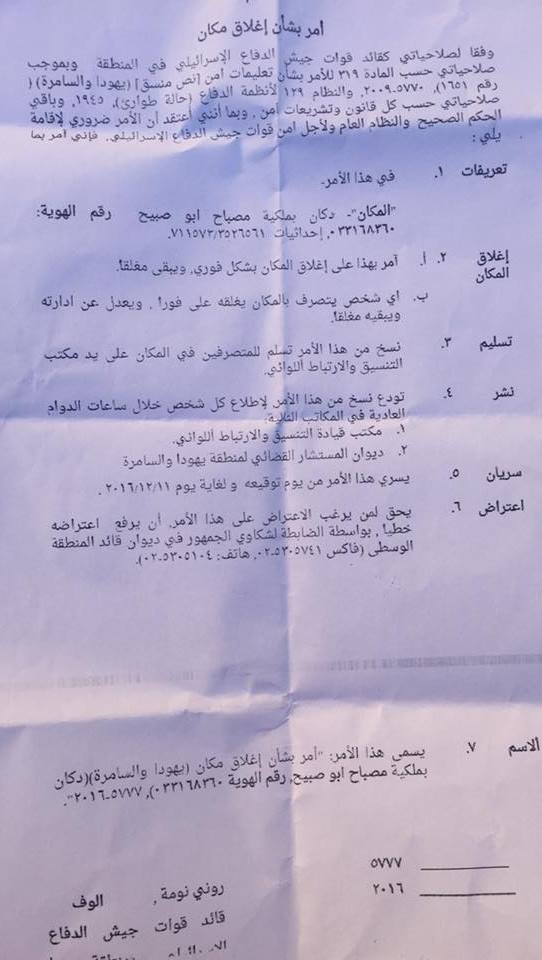 أمر بشأن إغلاق مكان
وفقا لصلاحياتي كقائد قوات جيش الدفاع الإسرائيلي في المنطقة وبموجب
صلاحياتي حسب المادة ٣١٩ للأمر بشأن تعليمات امن [نص منسق] (يهودا والسامرة) (
رقم ١٦٥١), ٥٧٧٠-٢٠٠٩, والنظام ١٢٩ لأنظمة الدفاع (حالة طوارئ), ١٩٤٥, وباقي
صلاحياتي حسب كل قانون وتشريعات أمن, وبما أنني أعتقد أن الأمر ضروري لإقامة
الحكم الصحيح والنظام العام ولأجل امن قوات جيش الدفاع الإسرائيلي, فإني آمر بما
يلي:
تعريفات ١. في هذا الأمر-
"المكان"- دكان بملكية مصباح ابو صبيح رقم الهوية:
٠٣٣١٦٨٣٦٠, إحداثيات ٧١١٥٧٣/٣٥٢٦٥٦١.
إغلاق ٢. أ. آمر بهذا على إغلاق المكان بشكل فوري, ويبقى مغلقا.
المكان
ب. اي شخص يتصرف بالمكان يغلقه على فورا, ويعدل عن ادارته
ويبقيه مغلقا.
تسليم ٣. نسخ من هذا الأمر تسلم للمتصرفين في المكان على يد مكتب
التنسيق والارتباط أللوائي.
نشر ٤. تودع نسخ من هذا الأمر لإطلاع كل شخص خلال ساعات الدوام
العادية في المكاتب التالية:
١. مكتب قيادة التنسيق والارتباط أللوائي.
٢. ديوان المستشار القضائي لمنطقة يهودا والسامرة
سريان ٥. يسري هذا الأمر من يوم توقيعه و لغاية يوم ٢٠١٦/١٢/١١.
اعتراض ٦. يحق لمن يرغب الاعتراض على هذا الأمر, أن يرفع اعتراضه
خطيا, بواسطة الضابطة لشكاوي الجمهور في ديوان قائد المنطقة
الوسطى (فاكس ٥٣٠٥٧٤١-٠٢, هاتف: ٥٣٠٥١٠٤-٠٢).
ألاسم ٧. يسمى هذا الأمر: "أمر بشأن إغلاق مكان (يهودا والسامرة)(دكان
بملكية مصباح ابو صبيح, رقم الهوية ٠٣٣١٦٨٣٦٠), ٥٧٧٧-٢٠١٦".
٥٧٧٧
٢٠١٦
روني نومة, الوف
قائد قوات جيش الدفاع